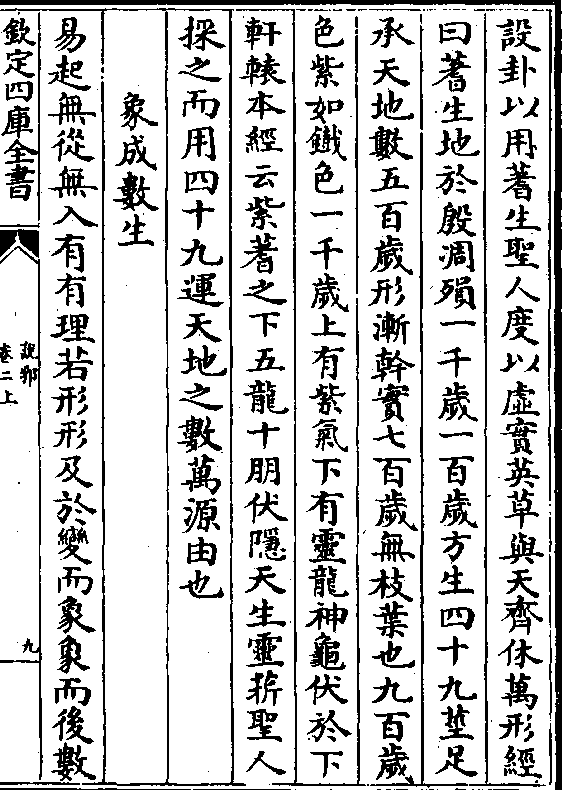 設卦以用蓍生聖人度以虛實英草與天齊休萬形經
曰蓍生地於殷凋殞一千歲一百歲方生四十九莖足
承天地數五百歲形漸幹實七百歲無枝葉也九百歲
色紫如鐵色一千歲上有紫氣下有靈龍神龜伏於下
軒轅本經云紫蓍之下五龍十朋伏隱天生靈菥聖人
採之而用四十九運天地之數萬源由也
象成數生
易起無從無入有有理若形形及於變而象象而後數
欽定四庫全書
說郛
卷二上
九